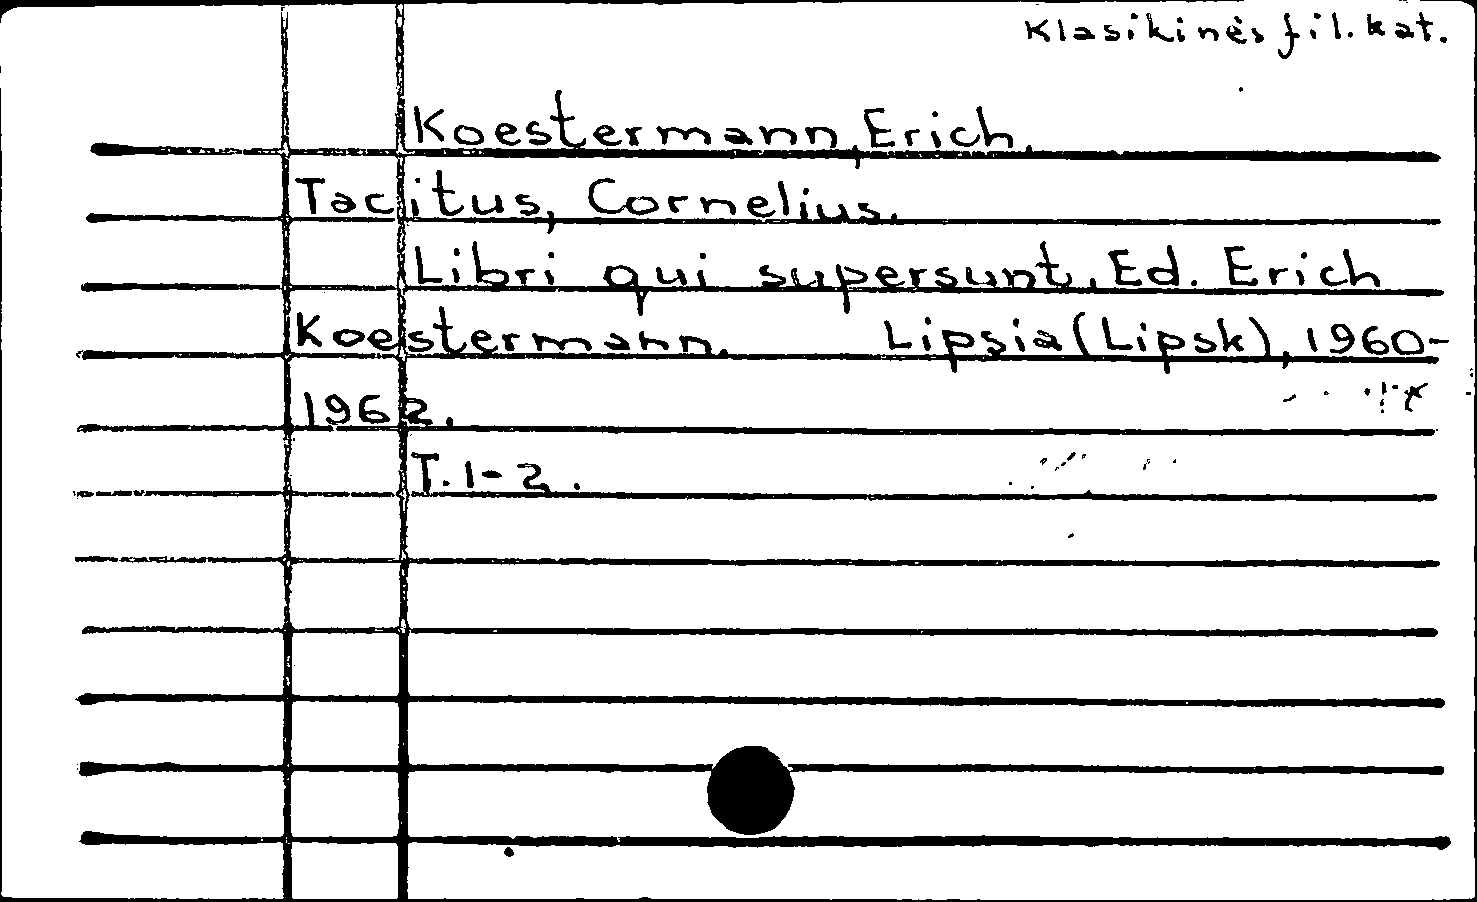 Klasikinės fil. kat.
Koestermann, Erich.
Tacitus, Cornelius.
Libri qui supersunt. Ed. Erich
Koestermann. Lipsia (Lipsk), 1960-
1962.
T. 1-2.